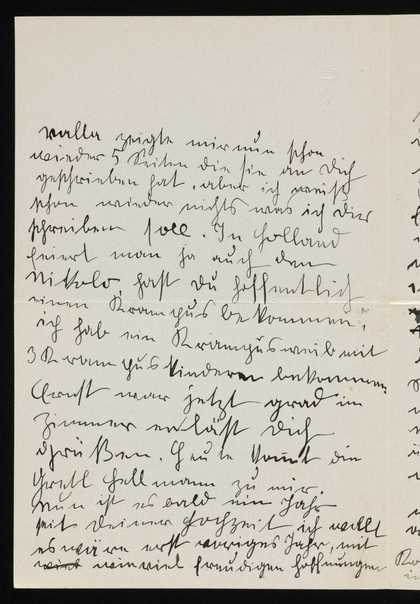 Walla zeigte mir nun schon
wieder 5 Seiten die sie an Dich
geschrieben hat, aber ich weiss
schon wieder nichts was ich Dir
schreiben soll. In Holland
feiert man ja auch den
Nikolo, hast Du hoffentlich
einen Krampus bekommen,
ich hab ein Krampusweib mit
3 Krampuskindern bekommen
Ernst war jetzt grad im
Zimmer er läßt Dich
grüßen. Heute kommt die
Gretl Hellmann zu mir.
Nun ist es bald ein Jahr
seit Deiner Hochzeit ich wollt
es wäre erst voriges Jahr, mit
wieviel freudigen Hoffnungen